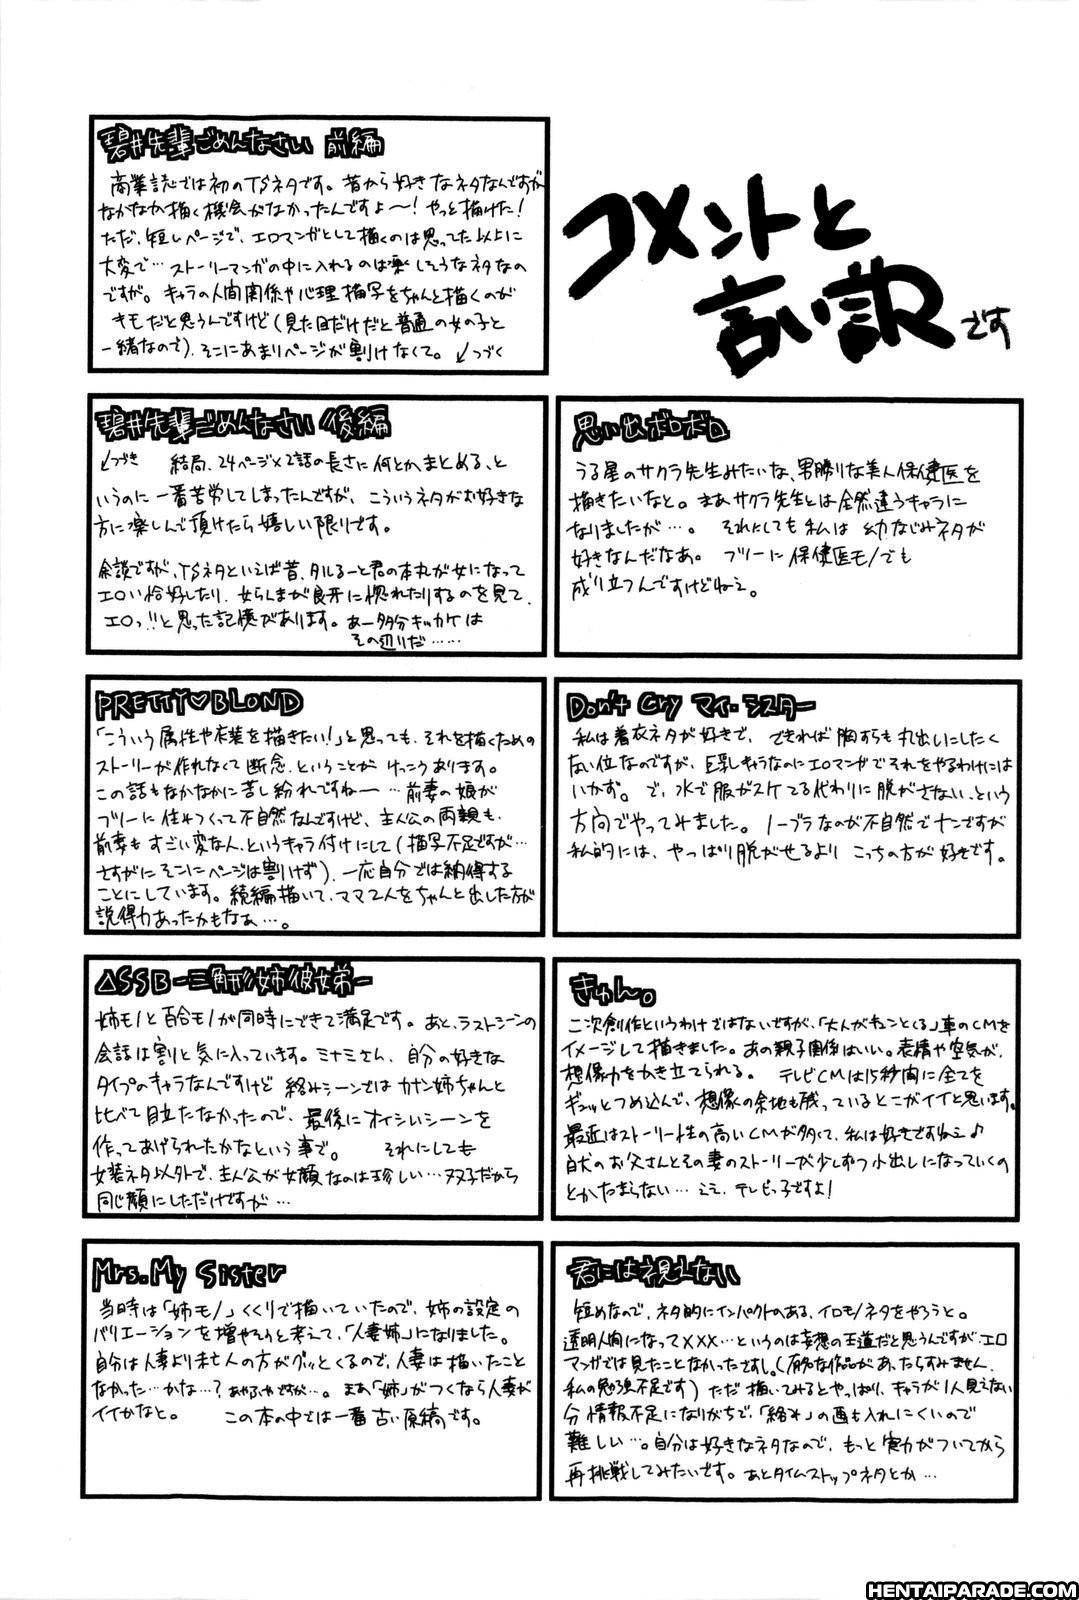 コメントと
言い訳です
碧井先輩ごめんなさい 前編
商業誌では初のTSネタです。昔から好きなネタなんですが
なかなか描く機会がなかったんですよ〜!やっと描けた!
ただ、短いページで、エロマンガとして描くのは思ってた以上に
大変で…ストーリーマンガの中に入れるのは楽しそうなネタなの
ですが。キャラの人間関係や心理描写をちゃんと描くのが
キモだと思うんですけど(見た目だけだと普通の女の子と
一緒なので)、そこにあまりページが割けなくて。↙つづく
碧井先輩ごめんなさい 後編
↙つづき 結局、24ページ×2話の長さに何とかまとめる、と
いうのに一番苦労してしまったんですが、こういうネタがお好きな
方に楽しんで頂けたら嬉しい限りです。
余談ですが、TSネタといえば昔、タルるーと君の本丸が女になって
エロい恰好したり、女らんまが良牙に惚れたりするのを見て、
エロっ!!と思った記憶があります。あー多分キッカケは
その辺りだ……
思い出ボロボロ
うる星のサクラ先生みたいな、男勝りな美人保健医を
描きたいなと。まあサクラ先生とは全然違うキャラに
なりましたが…。それにしても私は幼なじみネタが
好きなんだなあ。フツーに保健医モノでも
成り立つんですけどねえ。
PRETTY♡BLOND
「こういう属性や衣装を描きたい!」と思っても、それを描くための
ストーリーが作れなくて断念、ということがけっこうあります。
この話もなかなかに苦し紛れですねー…前妻の娘が
フツーに住みつくって不自然なんですけど、主人公の両親も、
前妻もすごい変な人、というキャラ付けにして(描写不足ですが…
さすがにそこにページは割けず)、一応自分では納得する
ことにしています。続編描いて、ママ2人をちゃんと出した方が
説得力あったかもなぁ…。
Don't Cry マイ・シスター
私は着衣ネタが好きで、できれば胸すらも丸出しにしたく
ない位なのですが、巨乳キャラなのにエロマンガでそれをやるわけには
いかず。で、水で服がスケてる代わりに脱がさない、という
方向でやってみました。ノーブラなのが不自然でナンですが
私的には、やっぱり脱がせるよりこっちの方が好きです。
△SSB-三角形姉彼妹-
姉モノと百合モノが同時にできて満足です。あと、ラストシーンの
会話は割と気に入っています。ミナミさん、自分の好きな
タイプのキャラなんですけど絡みシーンではカナン姉ちゃんと
比べて目立たなかったので、最後にオイシいシーンを
作ってあげられたかなという事で。それにしても
女装ネタ以外で、主人公が女顔なのは珍しい…双子だから
同じ顔にしただけですが…
きゅん。
二次創作というわけではないですが、「大人がキュンとくる」車のCMを
イメージして描きました。あの親子関係はいい。表情や空気が、
想像力をかき立てられる。テレビCMは15秒間に全てを
ギュッとつめ込んで、想像の余地も残っているとこがイイと思います。
最近はストーリー性の高いCMが多くて、私は好きですねえ♪
白犬のお父さんとその妻のストーリーが少しずつ小出しになっていくの
とかたまらない…ええ、テレビっ子ですよ!
Mrs.My Sister
当時は「姉モノ」くくりで描いていたので、姉の設定の
バリエーションを増やそうと考えて、「人妻姉」になりました。
自分は人妻より未亡人の方がグッとくるので、人妻は描いたこと
なかった…かな…?あやふやですが…。まあ「姉」がつくなら人妻が
イイかなと。この本の中では一番古い原稿です。
君には視えない
短めなので、ネタ的にインパクトのある、イロモノネタをやろうと。
透明人間になって×××…というのは妄想の王道だと思うんですが、エロ
マンガでは見たことなかったですし。(有名な作品があったらすみません、
私の勉強不足です)ただ描いてみるとやっぱり、キャラが1人見えない
分情報不足になりがちで、「絡み」の画も入れにくいので
難しい…。自分は好きなネタなので、もっと実力がついてから
再挑戦してみたいです。あとタイムストップネタとか…
HENTAIPARADE.COM